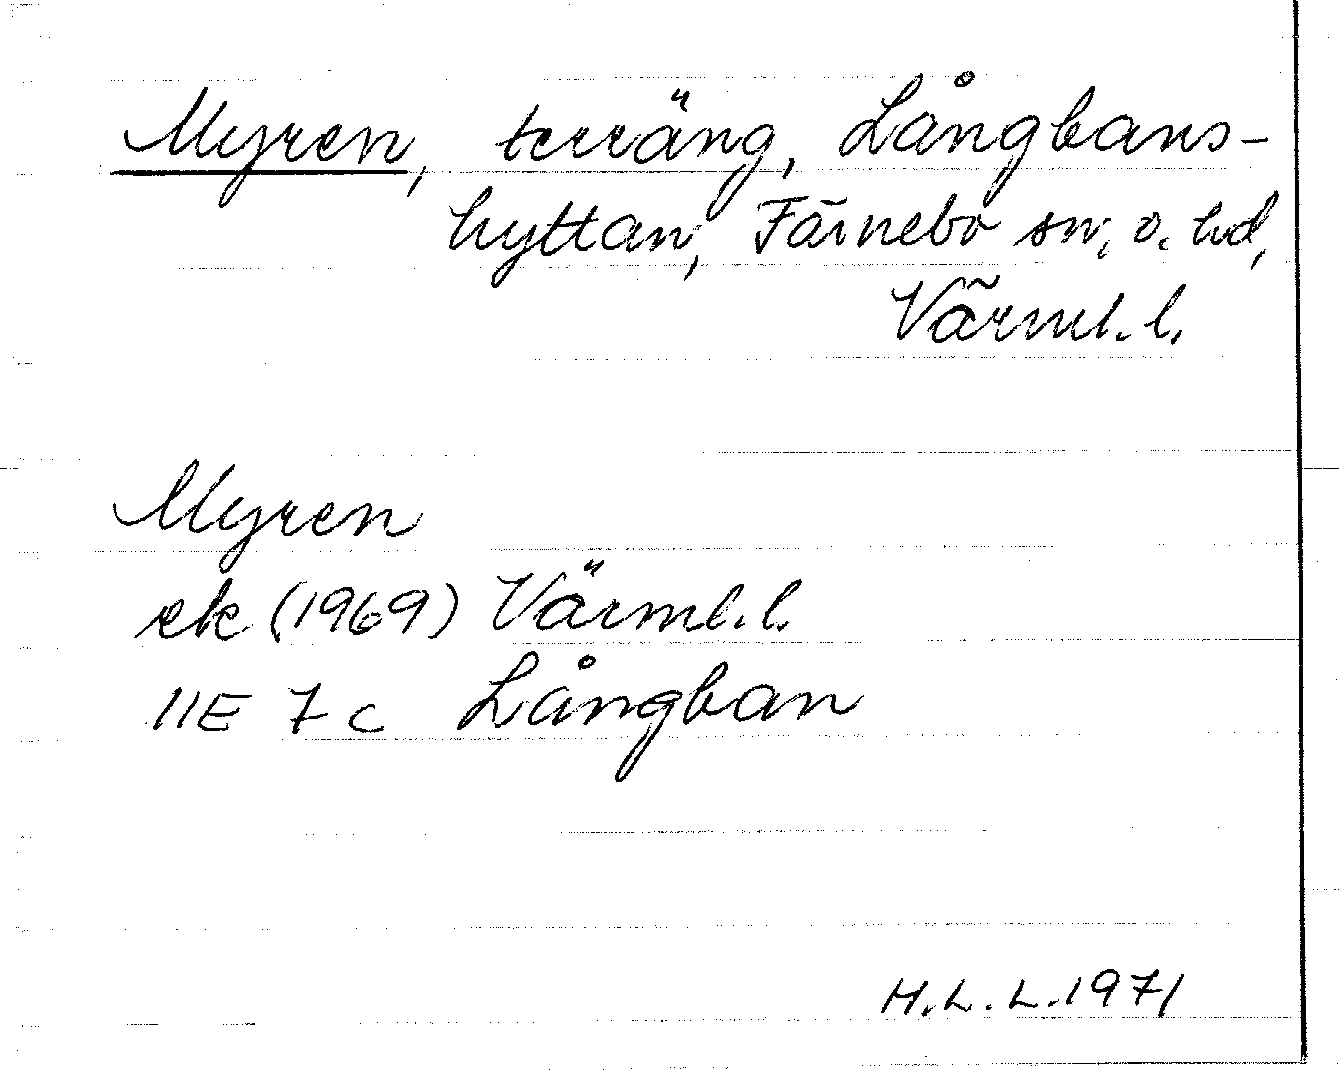 Myren, terräng, Långbans-
hyttan, Färnebo sn, o. hd,
Värml. l.
Myren
ek (1969) Värml. l.
11E 7c Långban
H.L.L.1971